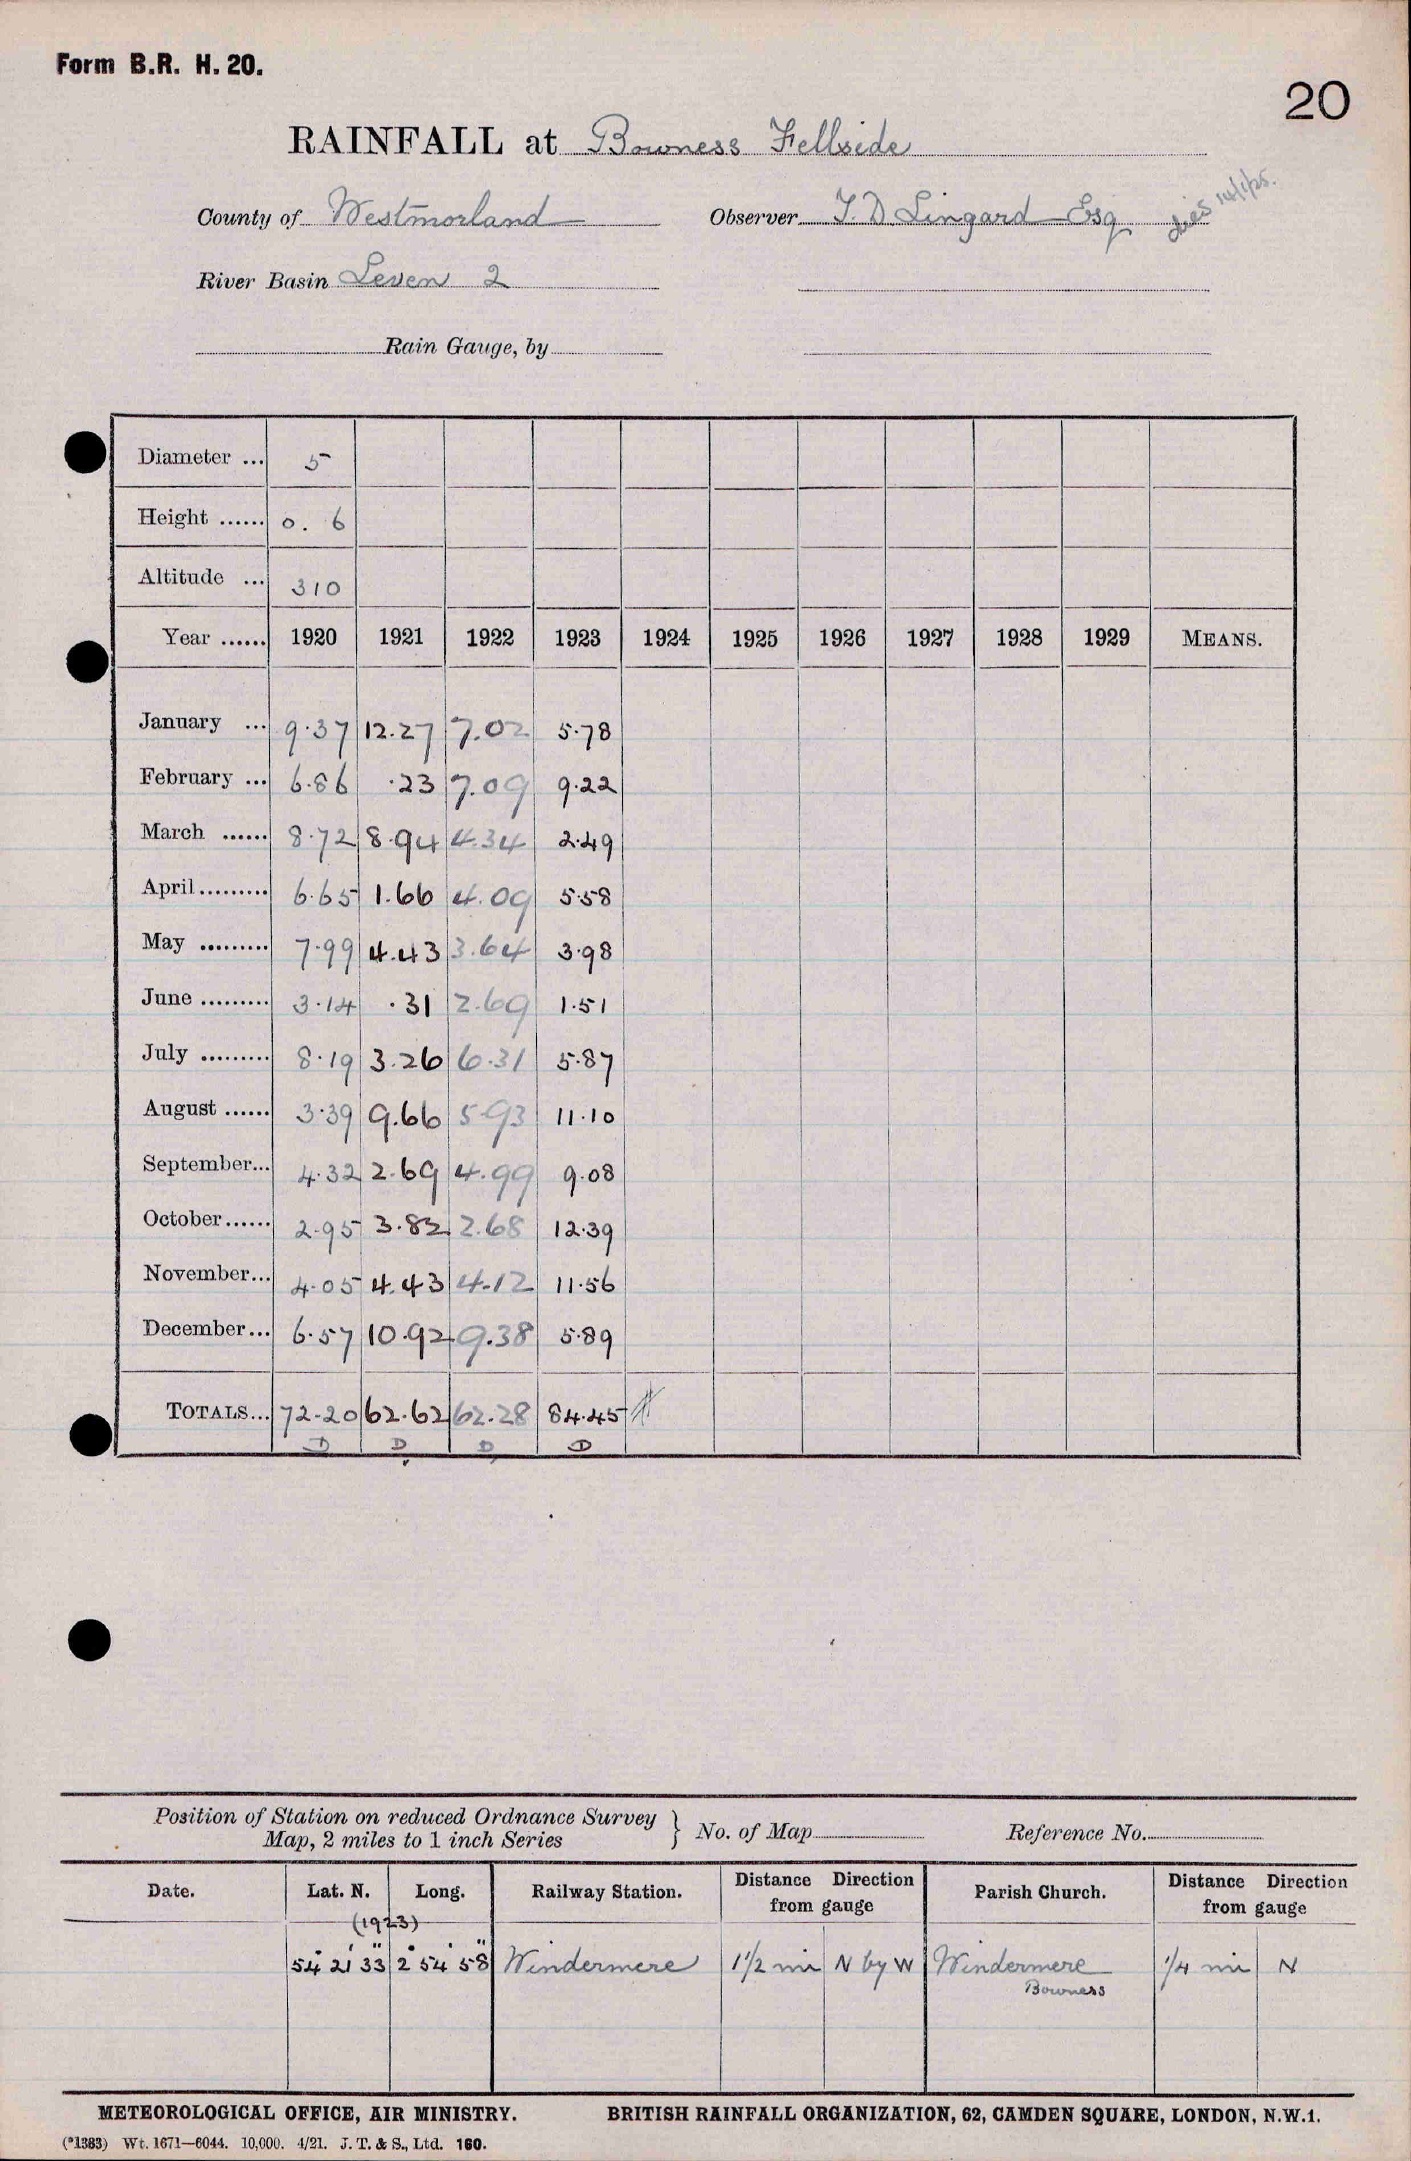 Form B.R. H. 20.
20
RAINFALL at Bowness Fellside
County of Westmorland Observer T. D. Lingard Esq
14/1/25.
River Basin Leven 2
Rain Gauge, by
Diameter ... 5
Height ...... 0. 6
Altitude ... 310
Year ...... 1920 1921 1922 1923 1924 1925 1926 1927 1928 1929 MEANS.
January ... 9.37 12.27 7.02 5.78
February ... 6.86 .23 7.09 9.22
March ...... 8.72 8.94 4.34 2.49
April ......... 6.65 1.66 4.09 5.58
May ......... 7.99 4.43 3.64 3.98
June ......... 3.14 .31 2.69 1.51
July ......... 8.19 3.26 6.31 5.87
August ...... 3.39 9.66 5.93 11.10
September... 4.32 2.69 4.99 9.08
October ...... 2.95 3.82 2.68 12.39
November... 4.05 4.43 4.12 11.56
December... 6.57 10.92 9.38 5.89
TOTALS... 72.20 62.62 62.28 84.45
D D D D
Position of Station on reduced Ordnance Survey
Map, 2 miles to 1 inch Series } No. of Map Reference No.
Date. Lat. N. Long. Railway Station. Distance Direction from gauge Parish Church. Distance Direction from gauge
(1923)
54° 21' 33" 2° 54' 58" Windermere 1 1/2 mi N by W Windermere 1/4 mi N
Bowness
METEOROLOGICAL OFFICE, AIR MINISTRY. BRITISH RAINFALL ORGANIZATION, 62, CAMDEN SQUARE, LONDON, N.W.1.
(*1383) Wt. 1671—6044. 10,000. 4/21. J. T. & S., Ltd. 160.